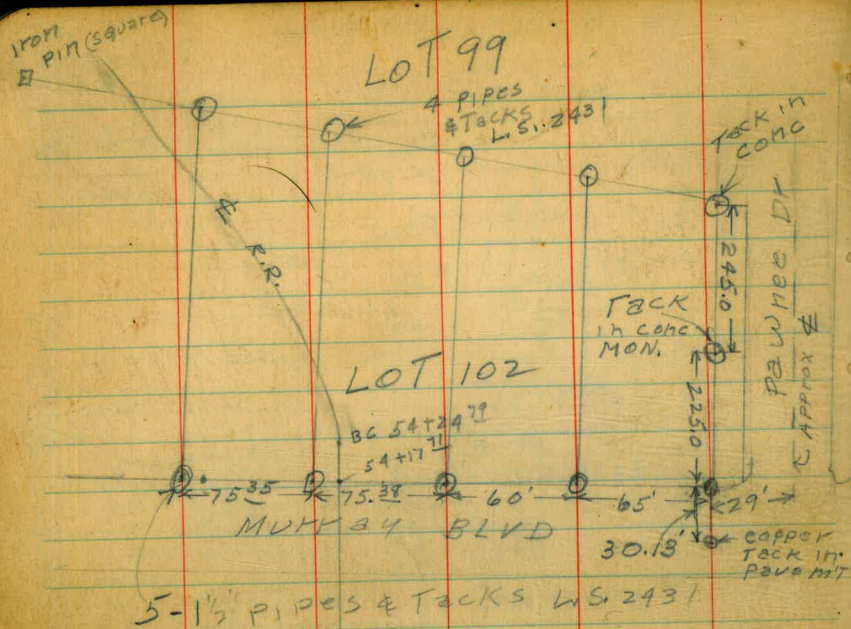 Iron
pin (square)
LOT 99
4 PIPES
& TACKS
L.S. 2431
Tack in
conc
℄ R.R.
245.0
Pawnee Dr
Tack
in conc
MON.
APPROX ℄
LOT 102
225.0
BC 54+24 79
54+17 71
75.35
75.38
60'
65'
29'
Murray BLVD
30.13'
copper
Tack in
Pavem'T
5-1½" PIPES & TACKS L.S. 2431